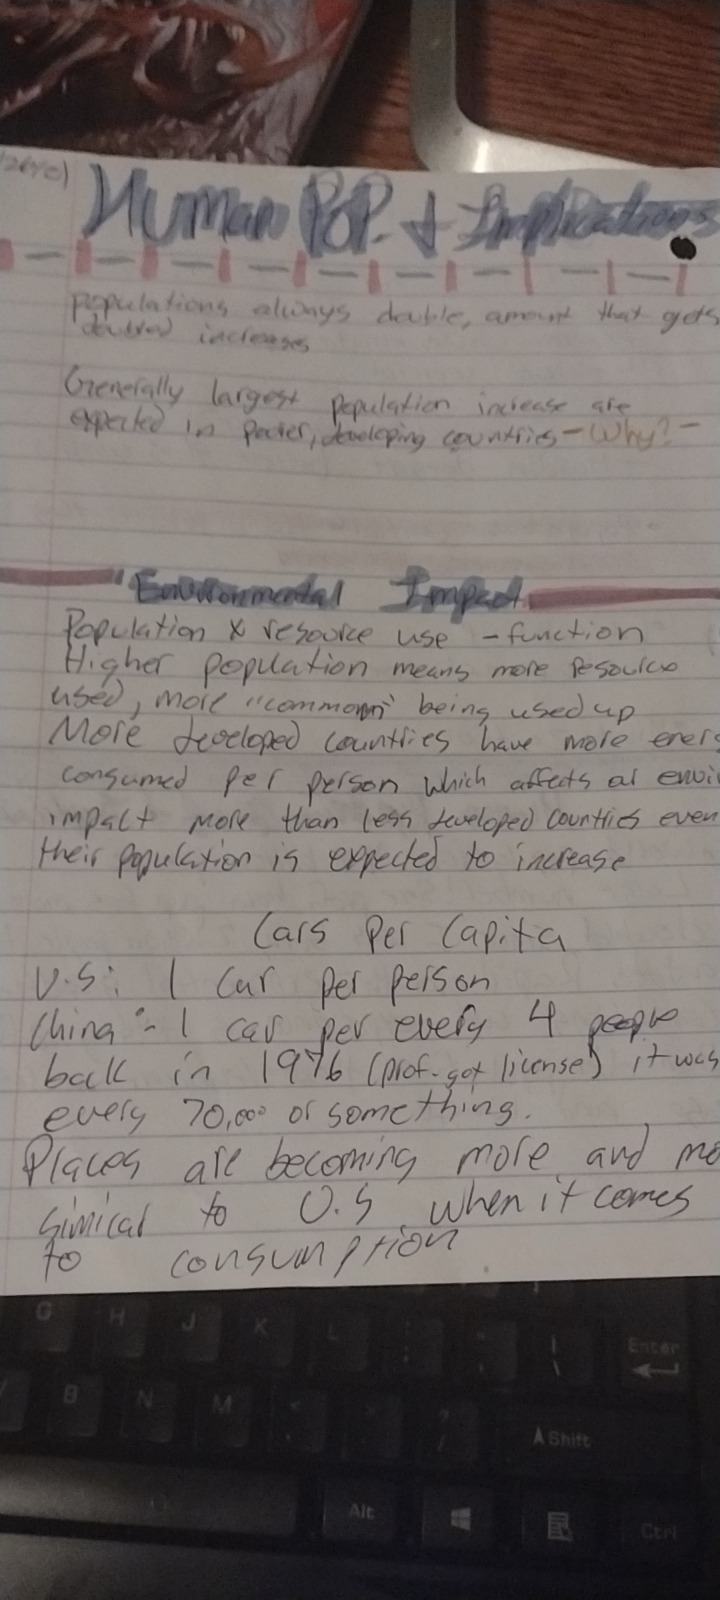 Human POP. & Implications
populations always double, amount that gets
doubled increases
Generally largest population increase are
expected in poorer, developing countries - Why? -
Environmental Impact
Population x resource use - function
Higher population means more resource
used, more "common" being used up
More developed countries have more energ
consumed per person which affects envi
impact more than less developed countries even
their population is expected to increase
Cars Per Capita
U.S: 1 Car per person
China - 1 car per every 4 people
back in 1976 (prof. got license) it was
every 70,000 or something.
Places are becoming more and mo
similar to U.S when it comes
to consumption
G H J K L : ; " ' | \ Enter
B N M < > ? /
Shift
Alt
Ctrl